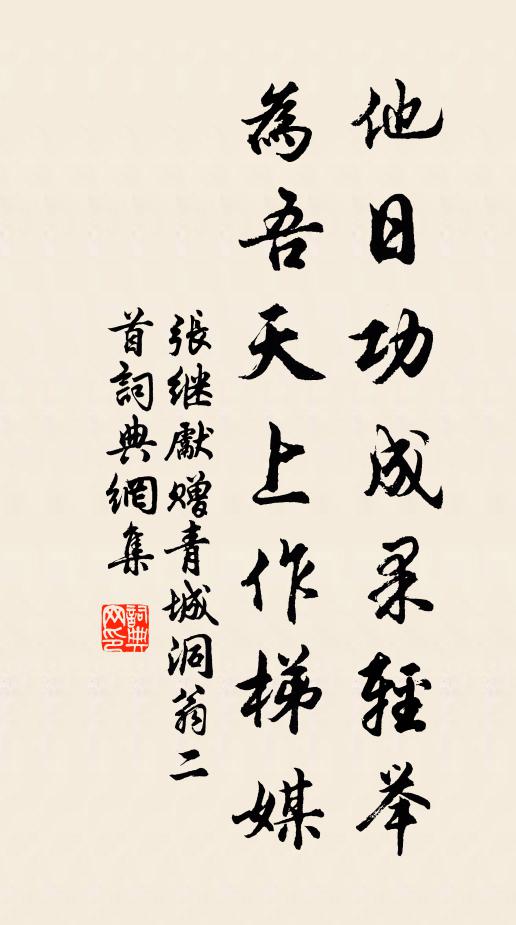 他日功成果轻举
為吾天上作梯媒
張继獻赠青城洞翁二
首詞典網集
詞典网印